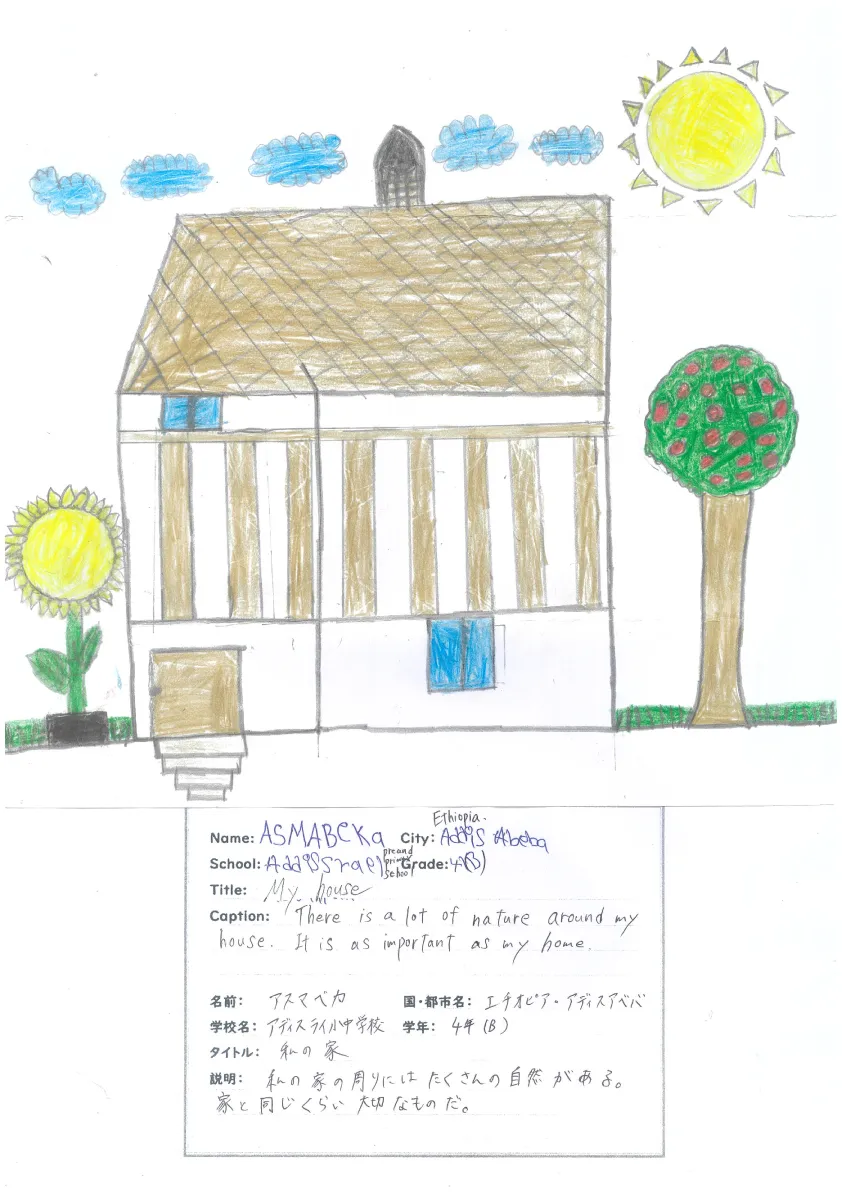 Ethiopia.
Name: ASMABEKa City: Addis Abeba
School: Addis Srael pre and primary School Grade: 4(B)
Title: My house
Caption: There is a lot of nature around my
house. It is as important as my home.
名前: アスマベカ 国・都市名: エチオピア・アディスアベバ
学校名: アディスライ小中学校 学年: 4年(B)
タイトル: 私の家
説明: 私の家の周りにはたくさんの自然がある。
家と同じくらい大切なものだ。